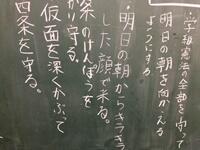 ・学級憲法の全部を守って
明日の朝を向かえる
ようにする。
・明日の朝からキラキラ
した顔で来る。
条のけんぽうを
かり守る。
仮面を深くかぶって
四条を守る。